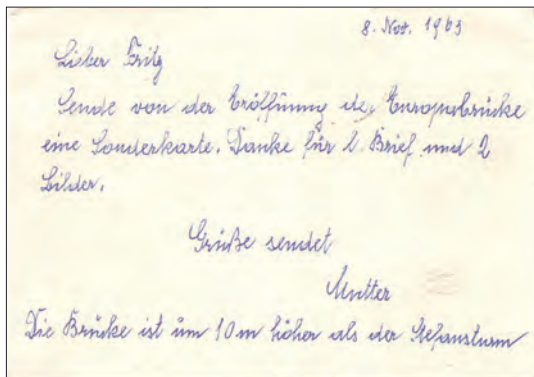 8. Nov. 1963
Lieber Fritz
Sende von der Eröffnung der Europabrücke
eine Sonderkarte. Danke für l. Brief und 2
Bilder.
Grüße sendet
Mutter
Die Brücke ist um 10 m höher als der Stefansturm